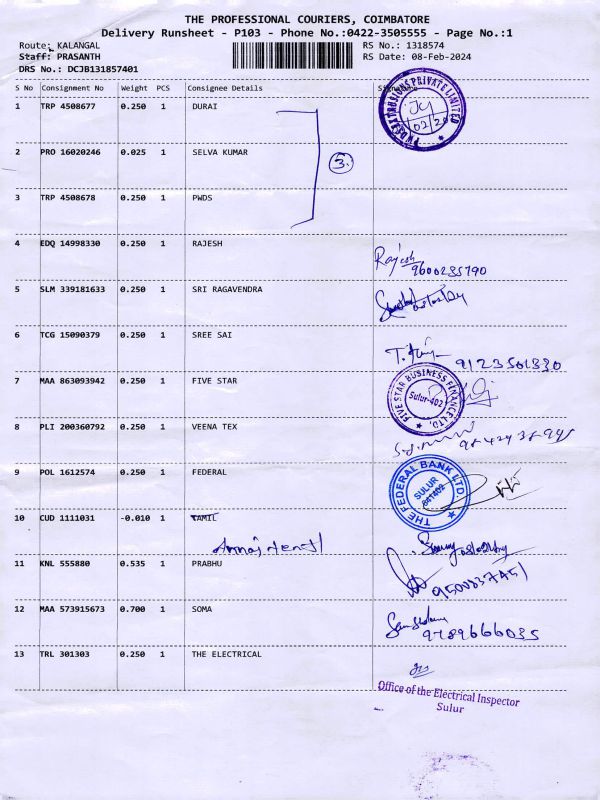 THE PROFESSIONAL COURIERS, COIMBATORE
Delivery Runsheet - P103 - Phone No.:0422-3505555 - Page No.:1
Route: KALANGAL RS No.: 1318574
Staff: PRASANTH RS Date: 08-Feb-2024
DRS No.: DCJB131857401
S No Consignment No Weight PCS Consignee Details Signature
1 TRP 4508677 0.250 1 DURAI
PRIVATE LIMITED
02/20
2 PRO 16020246 0.025 1 SELVA KUMAR
3
3 TRP 4508678 0.250 1 PWDS
4 EDQ 14998330 0.250 1 RAJESH
Rajesh
9600235790
5 SLM 339181633 0.250 1 SRI RAGAVENDRA
6 TCG 15090379 0.250 1 SREE SAI
9123501330
7 MAA 863093942 0.250 1 FIVE STAR
FIVE STAR BUSINESS FINANCE LTD.
Sulur-402
8 PLI 200360792 0.250 1 VEENA TEX
9 POL 1612574 0.250 1 FEDERAL
THE FEDERAL BANK LTD.
SULUR
641402
10 CUD 1111031 -0.010 1 TAMIL
11 KNL 555880 0.535 1 PRABHU
9500037451
12 MAA 573915673 0.700 1 SOMA
9789666035
13 TRL 301303 0.250 1 THE ELECTRICAL
Office of the Electrical Inspector
Sulur